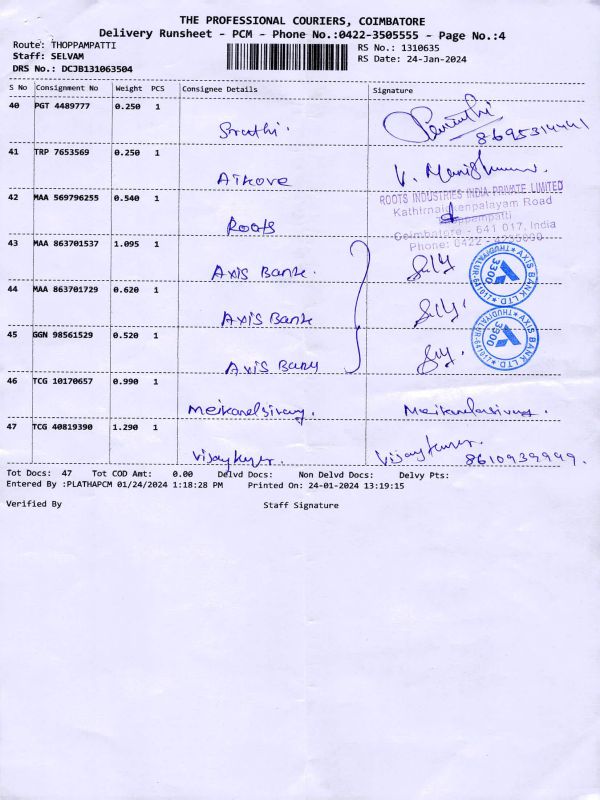 THE PROFESSIONAL COURIERS, COIMBATORE
Delivery Runsheet - PCM - Phone No.:0422-3505555 - Page No.:4
Route: THOPPAMPATTI
RS No.: 1310635
Staff: SELVAM
RS Date: 24-Jan-2024
DRS No.: DCJB131063504
S No Consignment No Weight PCS Consignee Details Signature
40 PGT 4489777 0.250 1 Sruthi.
8695314441
41 TRP 7653569 0.250 1 V.
42 MAA 569796255 0.540 1 Roots
ROOTS INDUSTRIES INDIA PRIVATE LIMITED
Kathirnaickenpalayam Road
Thoppampatti
Coimbatore - 641 017, India
Phone: 0422 -
43 MAA 863701537 1.095 1 Axis Bank.
AXIS BANK LTD.
3300
44 MAA 863701729 0.620 1 Axis Bank
AXIS BANK LTD.
3300
45 GGN 98561529 0.520 1 Axis Bank
46 TCG 10170657 0.990 1
47 TCG 40819390 1.290 1 Vijaykumar. Vijaykumar.
8610939999.
Tot Docs: 47 Tot COD Amt: 0.00 Delvd Docs: Non Delvd Docs: Delvy Pts:
Entered By :PLATHAPCM 01/24/2024 1:18:28 PM Printed On: 24-01-2024 13:19:15
Verified By Staff Signature